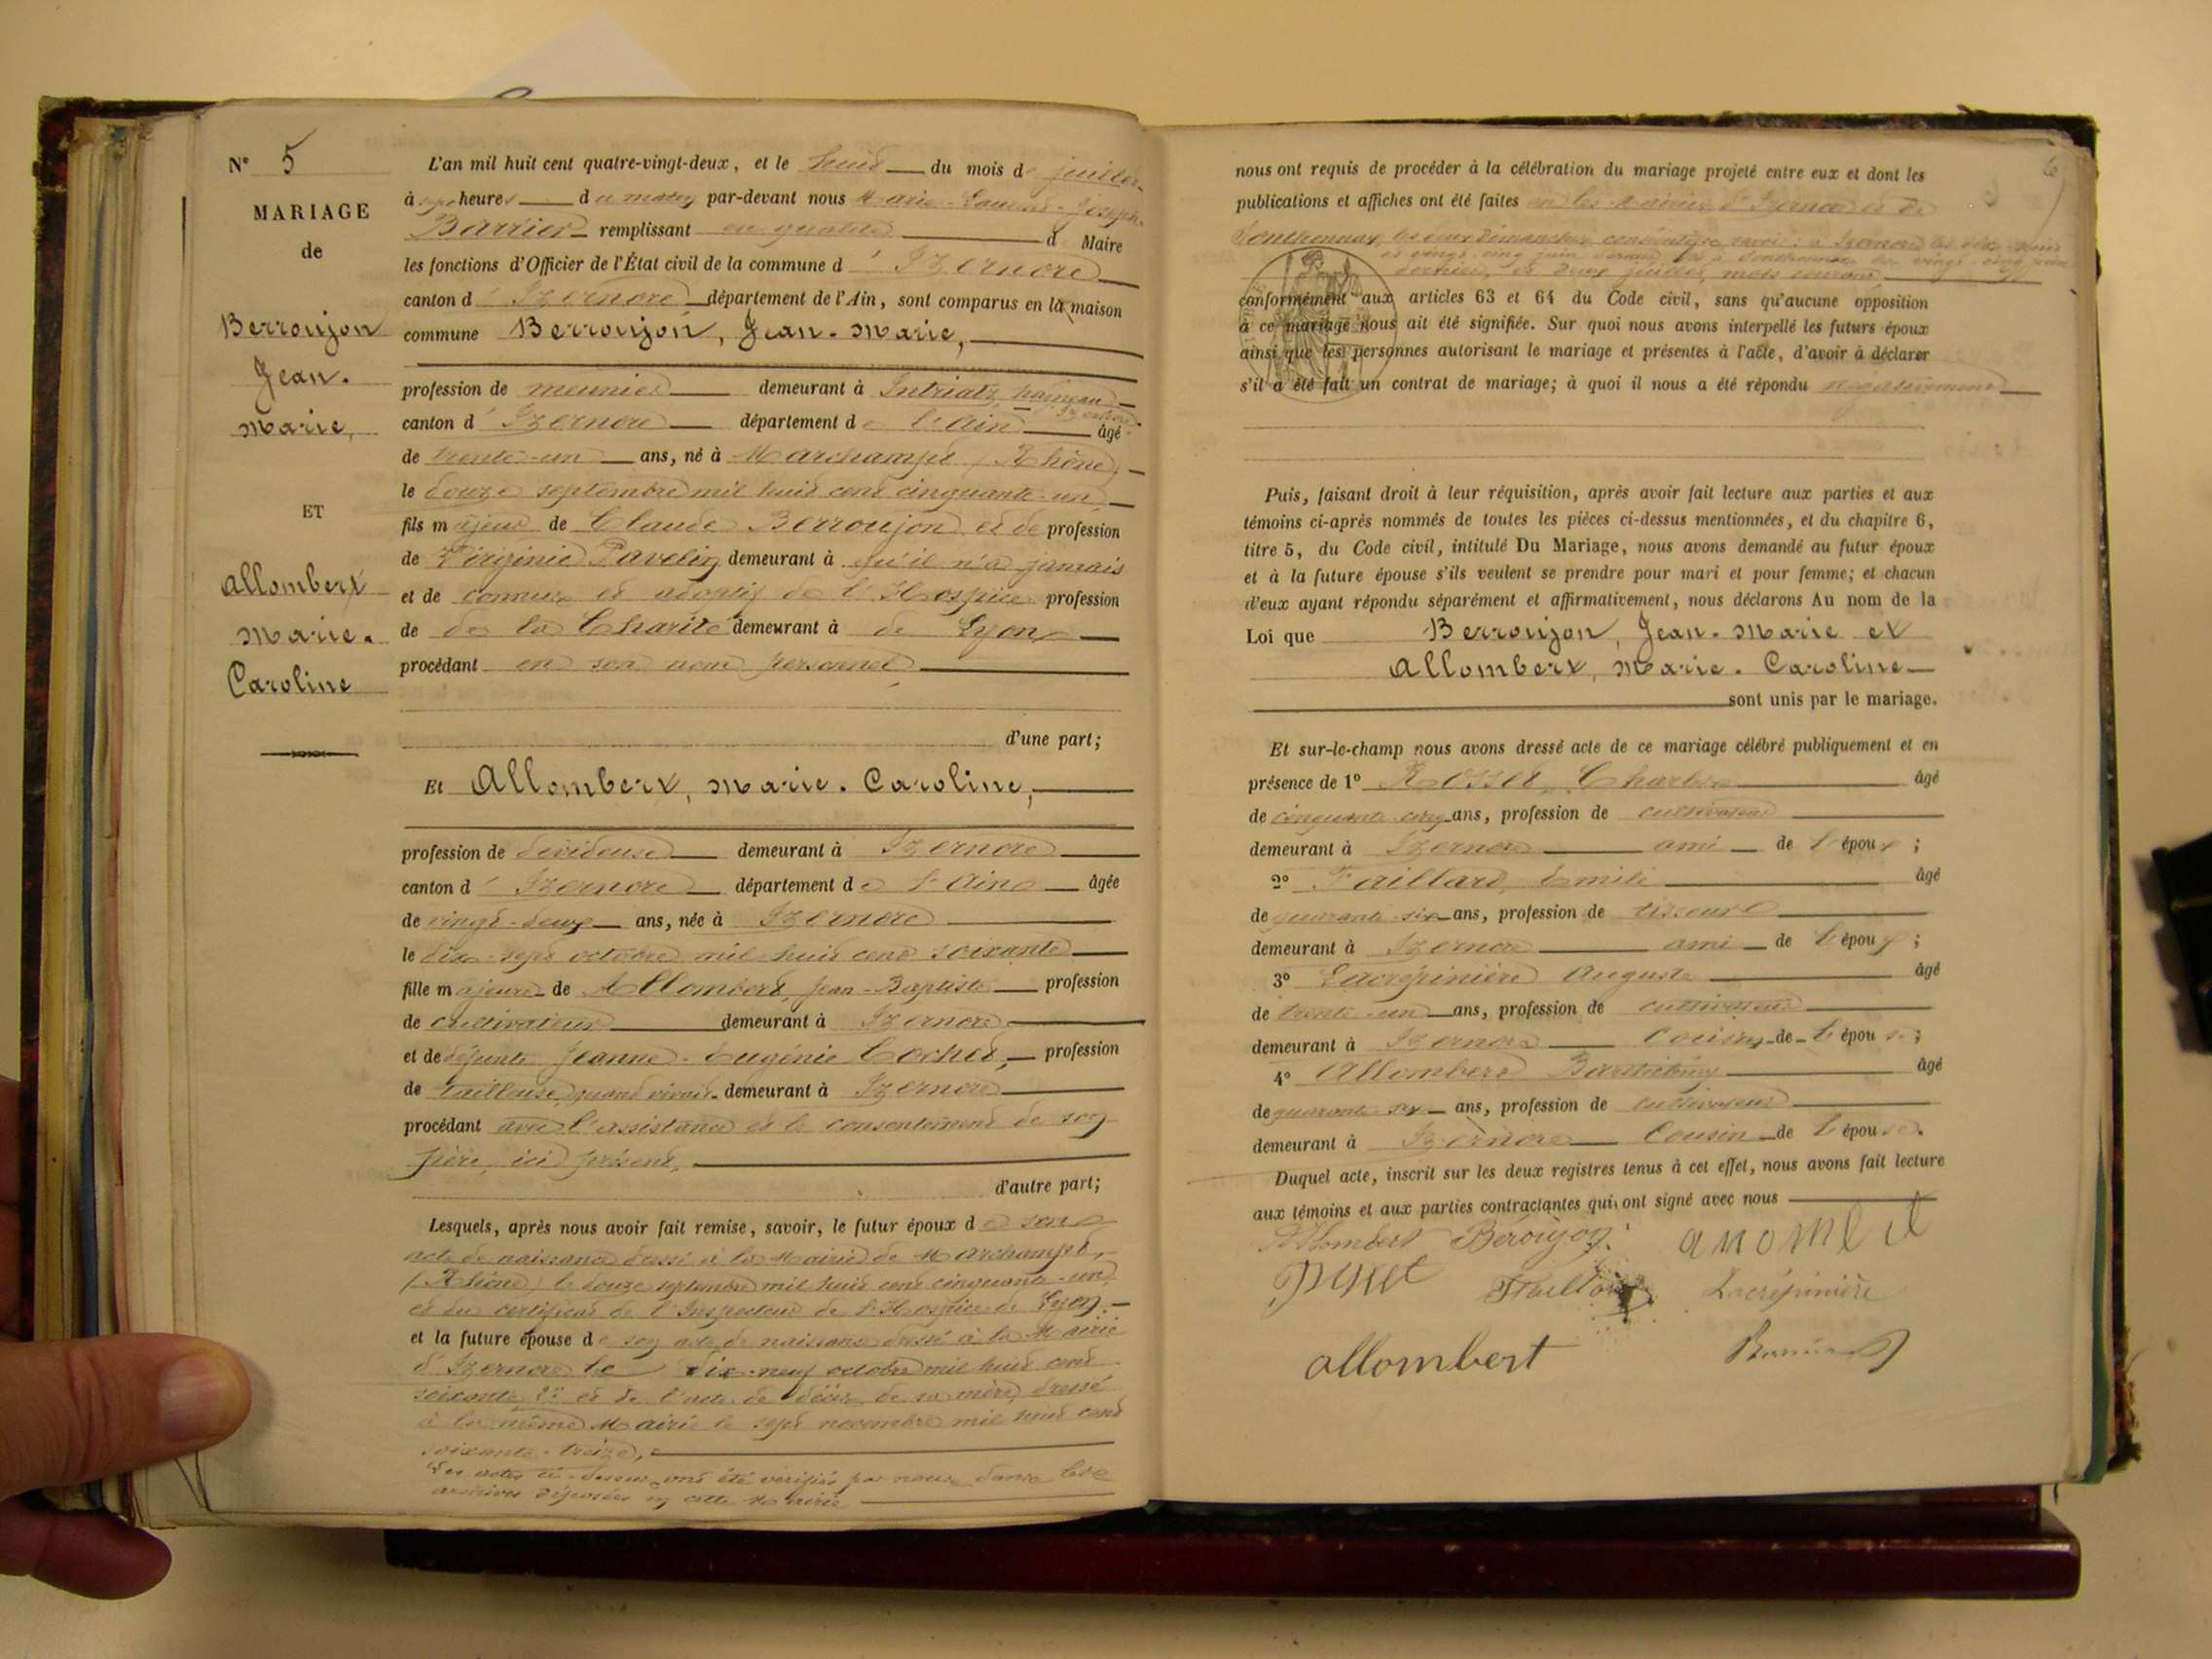 N° 5
MARIAGE
de
Berroujon
Jean.
Marie,
ET
Allombert
Marie.
Caroline
L'an mil huit cent quatre-vingt-deux, et le huit du mois de juillet
à sept heures du matin par-devant nous Marie-Laurent-Joseph
Barrier remplissant en qualité d Maire
les fonctions d'Officier de l'État civil de la commune d'Izernore
canton d'Izernore département de l'Ain, sont comparus en la maison
commune Berroujon, Jean-Marie,
profession de meunier demeurant à Intriat, hameau
d'Izernore
canton d'Izernore département de l'Ain âgé
de trente-un ans, né à Marchampt (Rhône)
le douze septembre mil huit cent cinquante-un
fils majeur de Claude Berroujon et de profession
de Virginie Pavelin demeurant à qu'il n'a jamais
et de connus et adoptif de l'Hospice profession
de de la Charité demeurant à de Lyon
procédant en son nom personnel
d'une part;
Et Allombert, Marie-Caroline,
profession de dévideuse demeurant à Izernore
canton d'Izernore département de l'Ain âgée
de vingt-deux ans, née à Izernore
le dix-sept octobre mil huit cent soixante
fille majeure de Allombert, Jean-Baptiste profession
de cultivateur demeurant à Izernore
et de défunte Jeanne-Eugénie Cochet, profession
de tailleuse quand vivait demeurant à Izernore
procédant avec l'assistance et le consentement de son
père, ici présent,
d'autre part;
Lesquels, après nous avoir fait remise, savoir, le futur époux de son
acte de naissance dressé à la Mairie de Marchampt
(Rhône) le douze septembre mil huit cent cinquante-un
et du certificat de l'Inspecteur de l'Hospice de Lyon
et la future épouse de son acte de naissance dressé à la Mairie
d'Izernore le dix-neuf octobre mil huit cent
soixante 2° et de l'acte de décès de sa mère dressé
à la même Mairie le sept novembre mil huit cent
soixante-treize,
Les actes ci-dessus ont été vérifiés par nous dans les
archives déposées en cette Mairie
6
nous ont requis de procéder à la célébration du mariage projeté entre eux et dont les
publications et affiches ont été faites en les Mairies d'Izernore et de
Sonthonnax les deux dimanches consécutifs savoir: à Izernore les dix-huit
et vingt-cinq juin dernier et à Sonthonnax les vingt-cinq juin
dernier et deux juillet, mois courant
conformément aux articles 63 et 64 du Code civil, sans qu'aucune opposition
à ce mariage nous ait été signifiée. Sur quoi nous avons interpellé les futurs époux
ainsi que les personnes autorisant le mariage et présentes à l'acte, d'avoir à déclarer
s'il a été fait un contrat de mariage; à quoi il nous a été répondu négativement
Puis, faisant droit à leur réquisition, après avoir fait lecture aux parties et aux
témoins ci-après nommés de toutes les pièces ci-dessus mentionnées, et du chapitre 6,
titre 5, du Code civil, intitulé Du Mariage, nous avons demandé au futur époux
et à la future épouse s'ils veulent se prendre pour mari et pour femme; et chacun
d'eux ayant répondu séparément et affirmativement, nous déclarons Au nom de la
Loi que Berroujon, Jean-Marie et
Allombert, Marie-Caroline
sont unis par le mariage.
Et sur-le-champ nous avons dressé acte de ce mariage célébré publiquement et en
présence de 1° Rosset, Charles âgé
de cinquante-cinq ans, profession de cultivateur
demeurant à Izernore ami de l'époux;
2° Faillard, Emile âgé
de quarante-six ans, profession de tisseur
demeurant à Izernore ami de l'époux;
3° Lacrépinière Auguste âgé
de trente-un ans, profession de cultivateur
demeurant à Izernore cousin de l'épouse;
4° Allombert Barthélemy âgé
de quarante-six ans, profession de cultivateur
demeurant à Izernore Cousin de l'épouse.
Duquel acte, inscrit sur les deux registres tenus à cet effet, nous avons fait lecture
aux témoins et aux parties contractantes qui ont signé avec nous
Allombert Béroujon
Lacrépinière
allombert